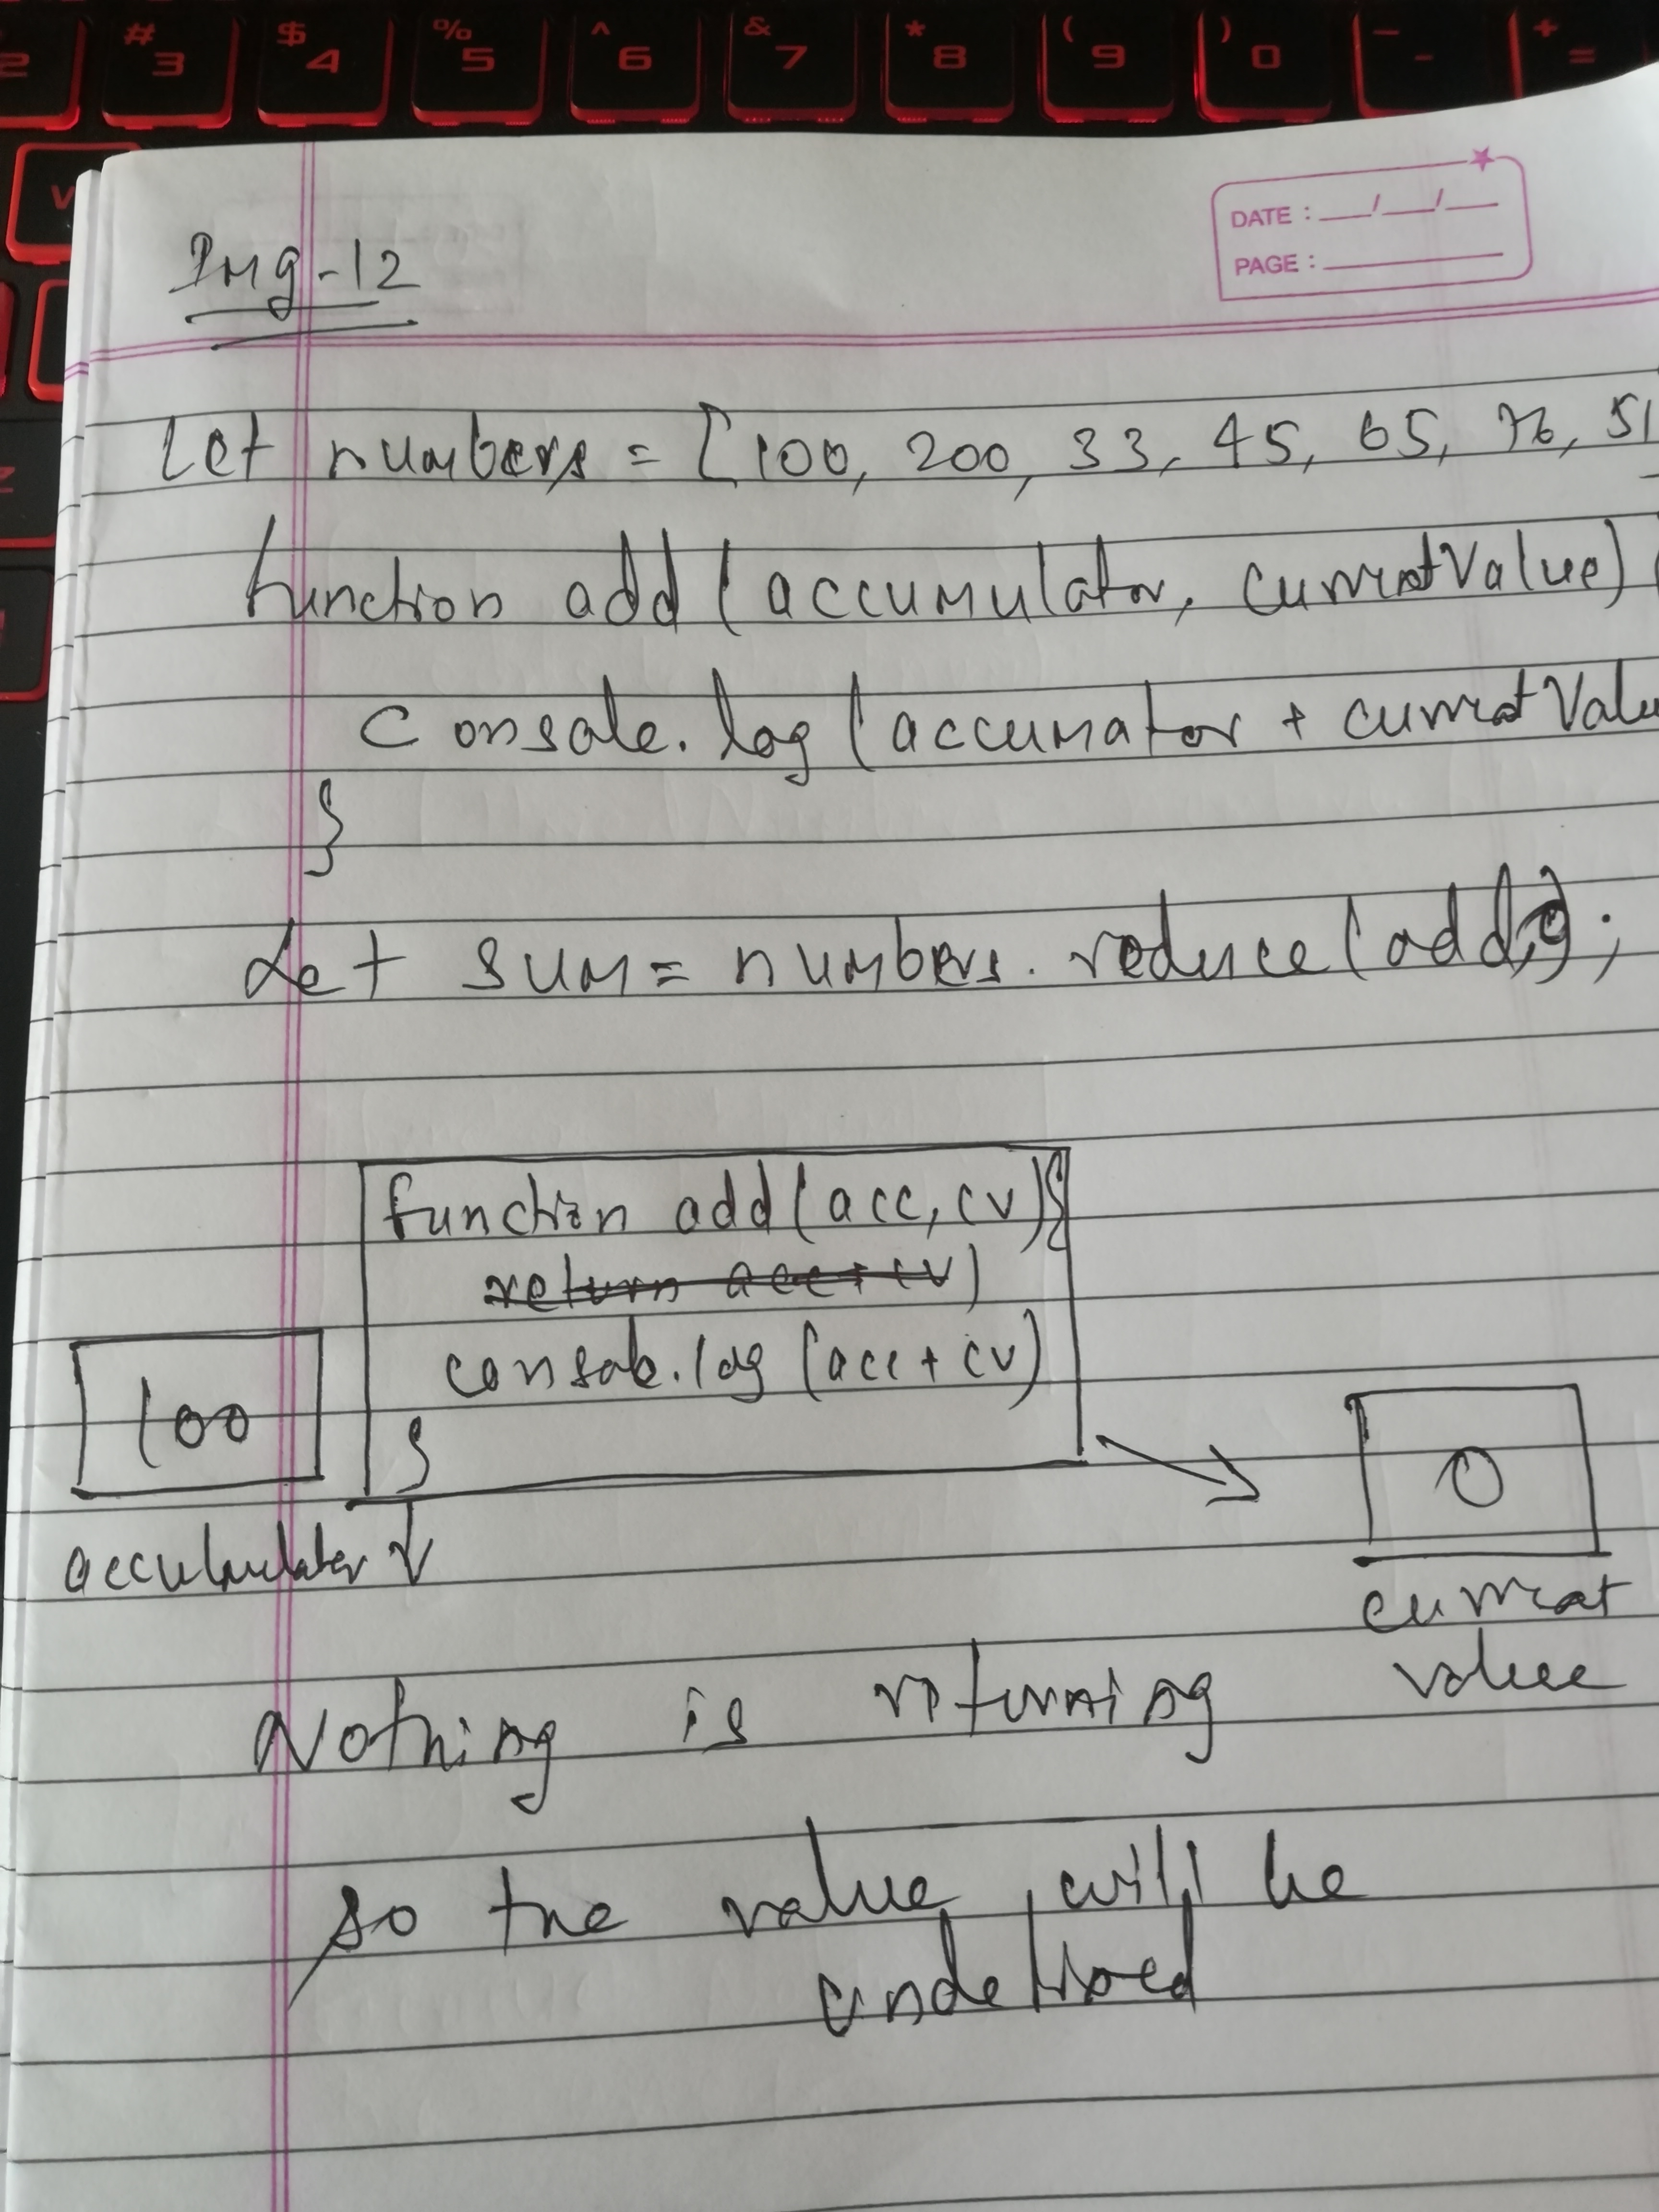 # 3 $ 4 % 5 ^ 6 & 7 * 8 ( 9 ) 0 - - + =
DATE : __/__/__
PAGE :
Img-12
Let numbers = [100, 200, 33, 45, 65, 76, 51
function add (accumulator, currentValue) {
console.log (accumator + currentValu
}
Let sum = numbers.reduce(add,0);
function add (acc, cv) {
return acc + cv)
console.log (acc + cv)
}
100
0
accumulator
current
value
Nothing is returning
so the value will be
undefined